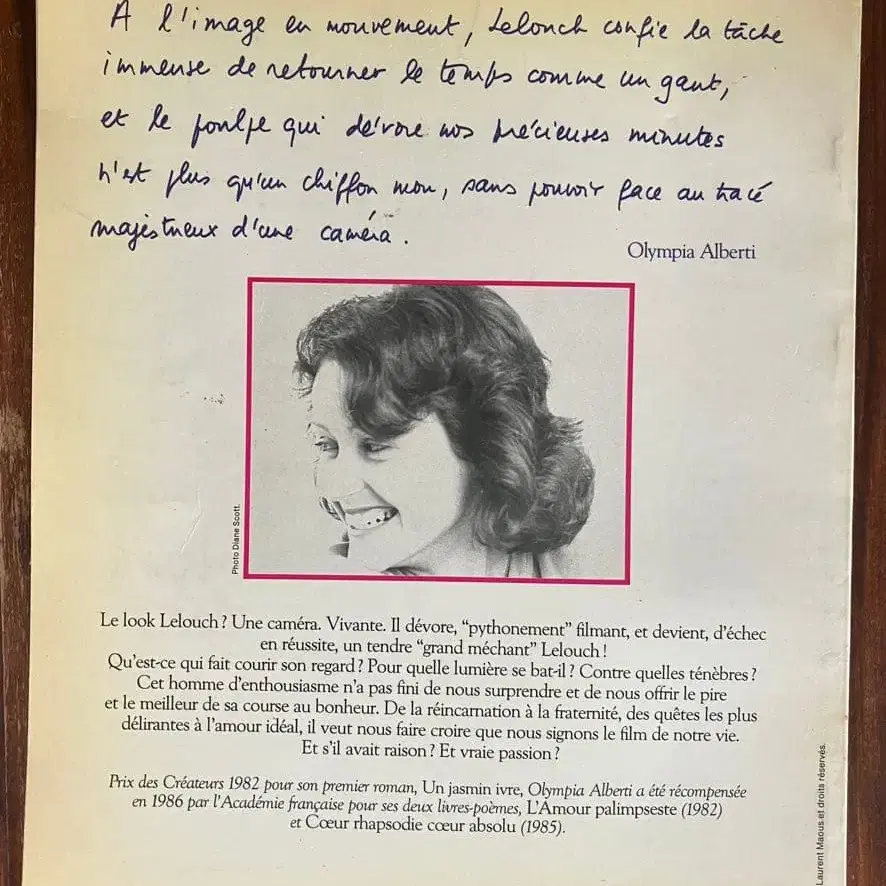 A l'image en mouvement, Lelouch confie la tâche
immense de retourner le temps comme un gant,
et le poulpe qui dévore nos précieuses minutes
n'est plus qu'un chiffon mou, sans pouvoir face au tracé
majestueux d'une caméra.
Olympia Alberti
Photo Diane Scott.
Le look Lelouch ? Une caméra. Vivante. Il dévore, "pythonement" filmant, et devient, d'échec
en réussite, un tendre "grand méchant" Lelouch !
Qu'est-ce qui fait courir son regard ? Pour quelle lumière se bat-il ? Contre quelles ténèbres ?
Cet homme d'enthousiasme n'a pas fini de nous surprendre et de nous offrir le pire
et le meilleur de sa course au bonheur. De la réincarnation à la fraternité, des quêtes les plus
délirantes à l'amour idéal, il veut nous faire croire que nous signons le film de notre vie.
Et s'il avait raison ? Et vraie passion ?
Prix des Créateurs 1982 pour son premier roman, Un jasmin ivre, Olympia Alberti a été récompensée
en 1986 par l'Académie française pour ses deux livres-poèmes, L'Amour palimpseste (1982)
et Cœur rhapsodie cœur absolu (1985).
Laurent Maous et droits réservés.